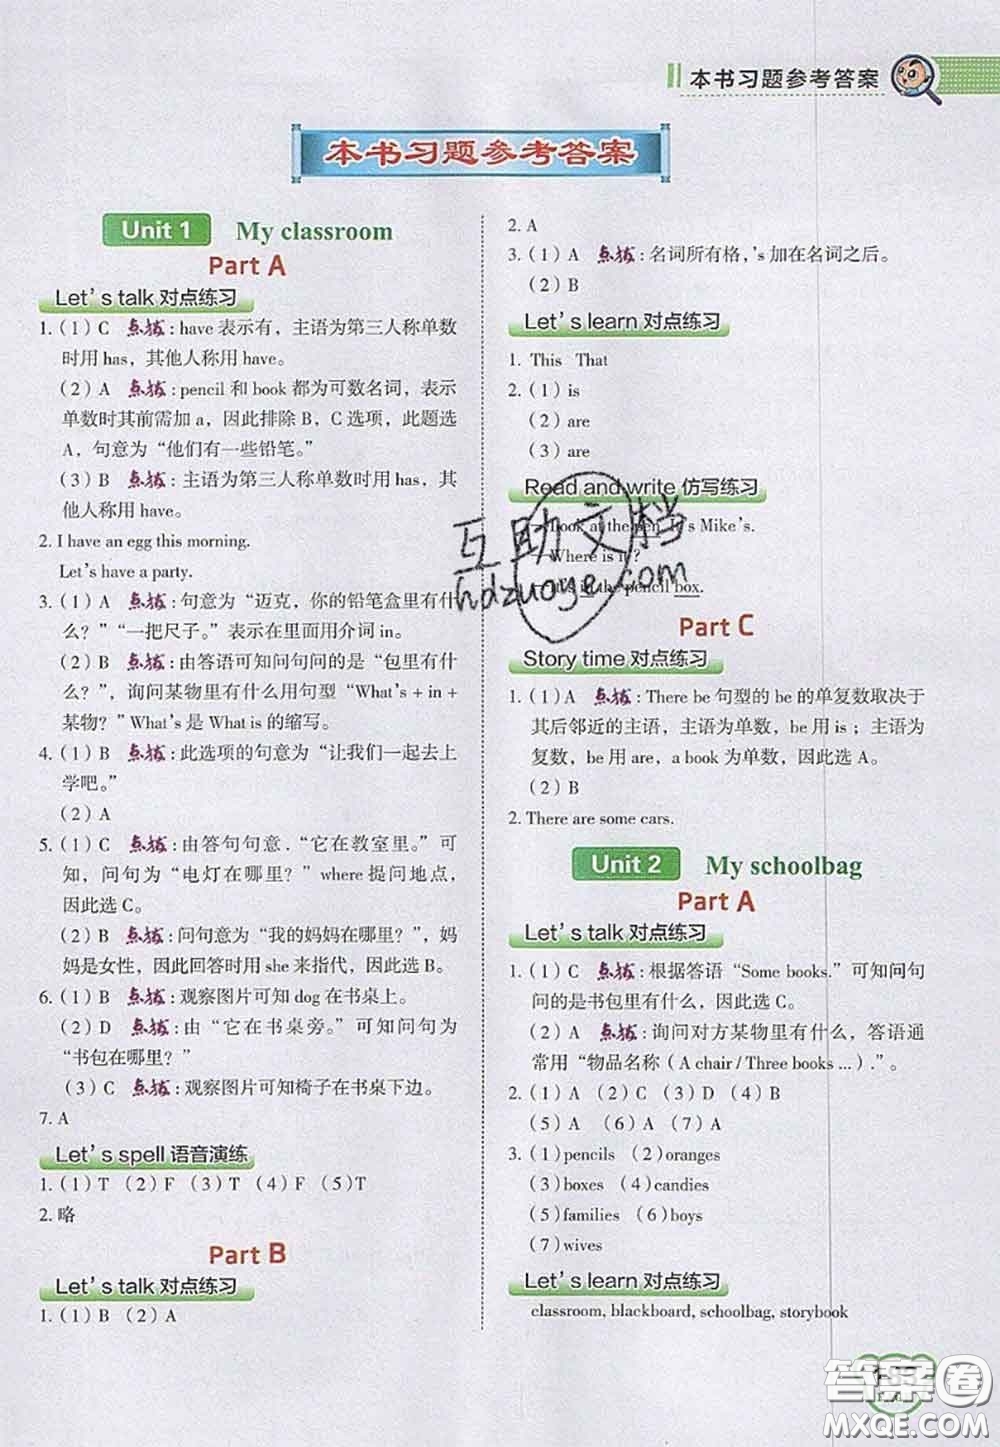 本书习题参考答案
本书习题参考答案
Unit 1 My classroom
Part A
Let's talk 对点练习
1. (1) C 点拨:have 表示有，主语为第三人称单数
时用 has, 其他人称用 have。
(2) A 点拨:pencil 和 book 都为可数名词，表示
单数时其前需加 a，因此排除 B，C 选项，此题选
A，句意为“他们有一些铅笔。”
(3) B 点拨:主语为第三人称单数时用 has，其
他人称用 have。
2. I have an egg this morning.
Let's have a party.
3. (1) A 点拨:句意为“迈克，你的铅笔盒里有什
么？”“一把尺子。”表示在里面用介词 in。
(2) B 点拨:由答语可知问句问的是“包里有什
么？”，询问某物里有什么用句型“What's + in +
某物？”What's 是 What is 的缩写。
4. (1) B 点拨:此选项的句意为“让我们一起去上
学吧。”
(2) A
5. (1) C 点拨:由答句句意.“它在教室里。”可
知，问句为“电灯在哪里？”where 提问地点，
因此选 C。
(2) B 点拨:问句意为“我的妈妈在哪里？”，妈
妈是女性，因此回答时用 she 来指代，因此选 B。
6. (1) B 点拨:观察图片可知 dog 在书桌上。
(2) D 点拨:由“它在书桌旁。”可知问句为
“书包在哪里？”
(3) C 点拨:观察图片可知椅子在书桌下边。
7. A
Let's spell 语音演练
1. (1) T (2) F (3) T (4) F (5) T
2. 略
Part B
Let's talk 对点练习
1. (1) B (2) A
2. A
3. (1) A 点拨:名词所有格,'s 加在名词之后。
(2) B
Let's learn 对点练习
1. This That
2. (1) is
(2) are
(3) are
Read and write 仿写练习
—Look at the pen. It's Mike's.
—Where is it?
—It's in the pencil box.
Part C
Story time 对点练习
1. (1) A 点拨:There be 句型的 be 的单复数取决于
其后邻近的主语，主语为单数，be 用 is；主语为
复数，be 用 are，a book 为单数，因此选 A。
(2) B
2. There are some cars.
Unit 2 My schoolbag
Part A
Let's talk 对点练习
1. (1) C 点拨:根据答语“Some books.”可知问句
问的是书包里有什么，因此选 C。
(2) A 点拨:询问对方某物里有什么，答语通
常用“物品名称（A chair / Three books ...）.”。
2. (1) A (2) C (3) D (4) B
(5) A (6) A (7) A
3. (1) pencils (2) oranges
(3) boxes (4) candies
(5) families (6) boys
(7) wives
Let's learn 对点练习
classroom, blackboard, schoolbag, storybook
互助文档
hdzuoye.com
答案卷
MXQE.COM